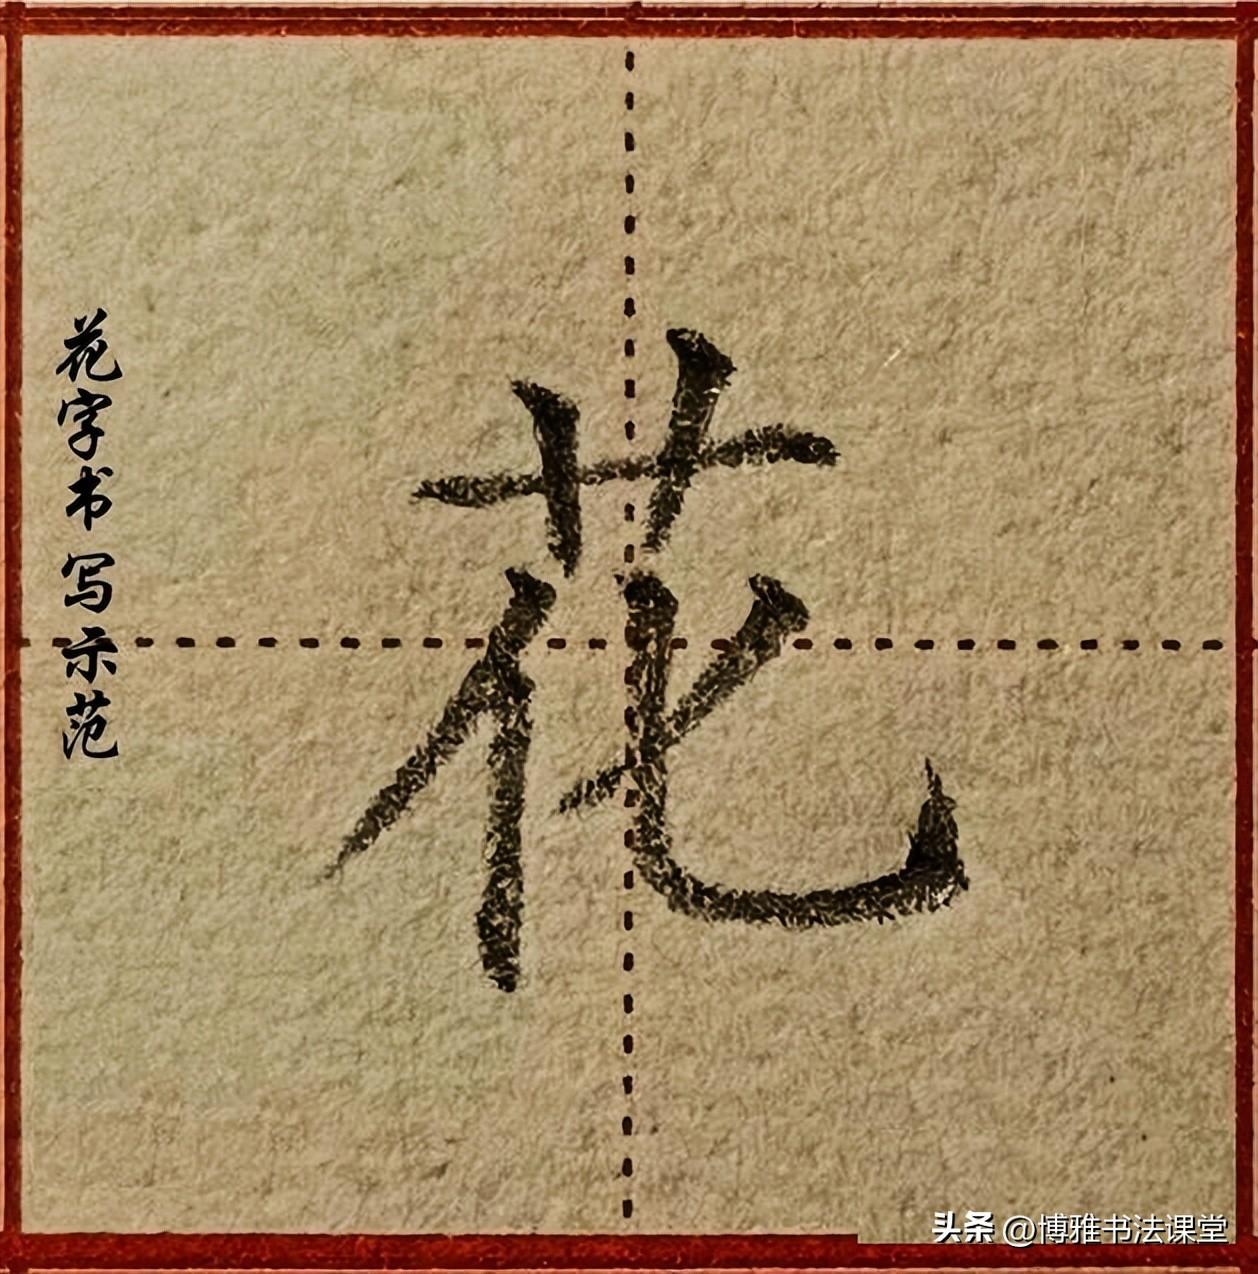 花
花字书写示范
头条 @博雅书法课堂